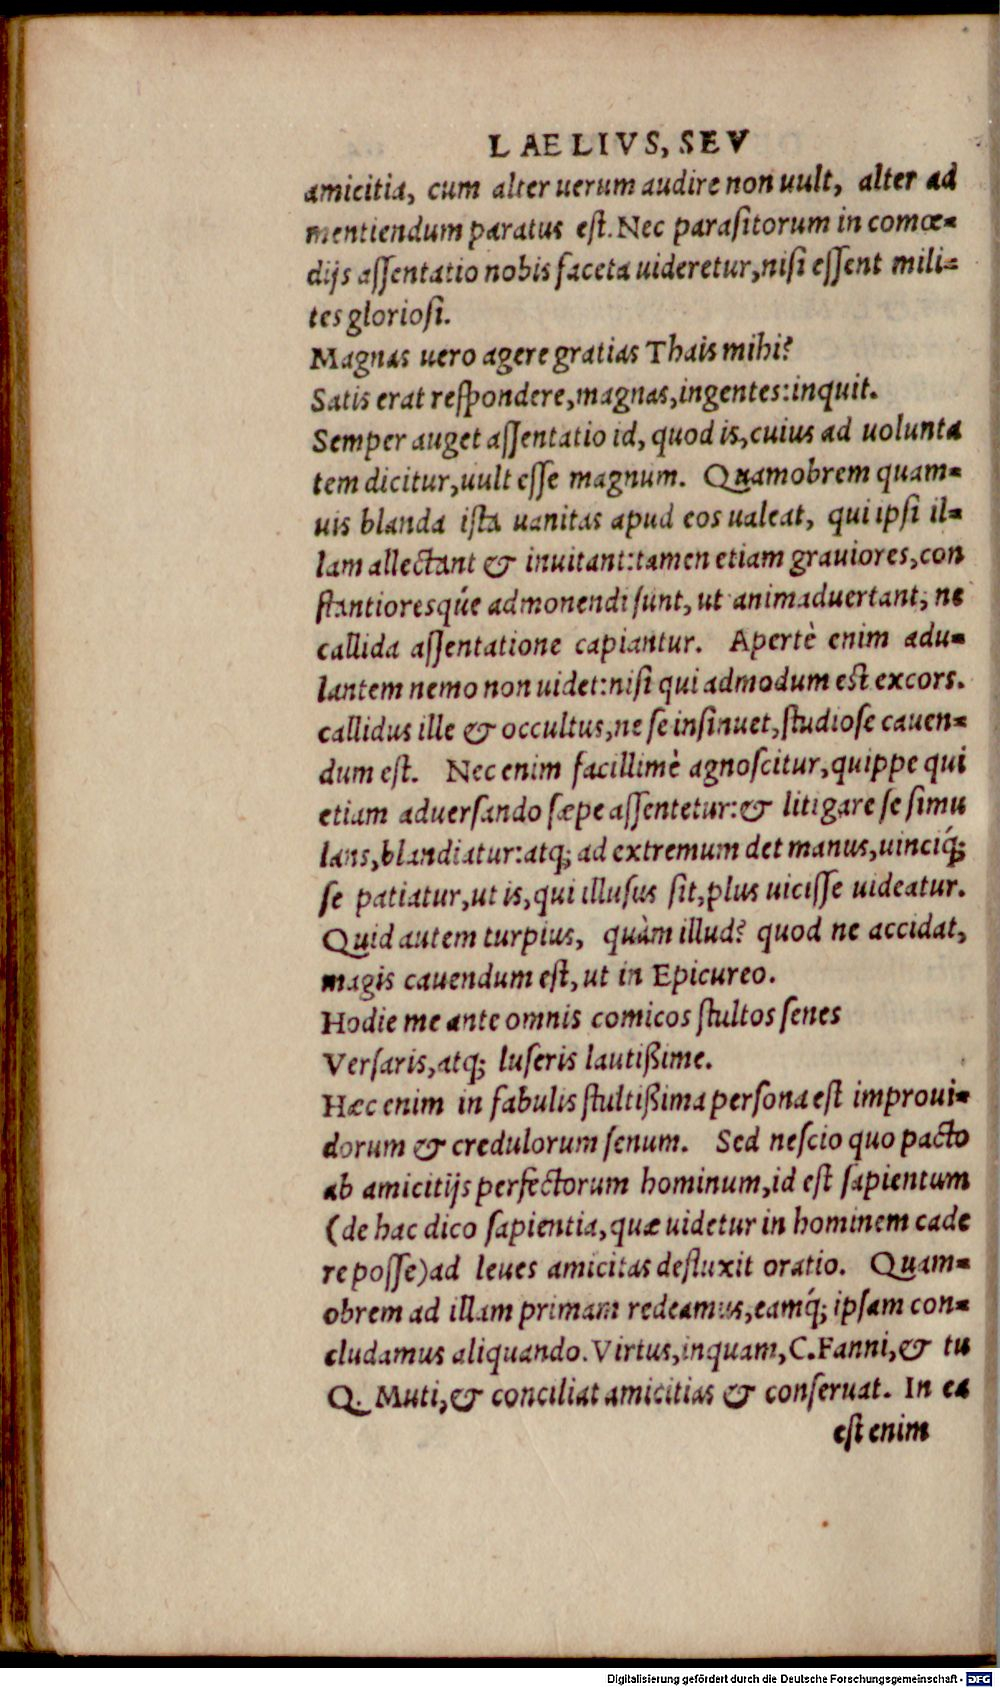 LAELIVS, SEV
amicitia, cum alter uerum audire non uult, alter ad
mentiendum paratus est. Nec parasitorum in comœ-
dijs assentatio nobis faceta uideretur, nisi essent mili-
tes gloriosi.
Magnas uero agere gratias Thais mihi?
Satis erat respondere, magnas, ingentes: inquit.
Semper auget assentatio id, quod is, cuius ad uolunta
tem dicitur, uult esse magnum. Quamobrem quam-
uis blanda ista uanitas apud eos ualeat, qui ipsi il-
lam allectant & inuitant: tamen etiam grauiores, con
stantioresq́ue admonendi sunt, ut animaduertant, ne
callida assentatione capiantur. Apertè enim adu-
lantem nemo non uidet: nisi qui admodum est excors.
callidus ille & occultus, ne se insinuet, studiose cauen-
dum est. Nec enim facillimè agnoscitur, quippe qui
etiam aduersando sæpe assentetur: & litigare se simu
lans, blandiatur: atq; ad extremum det manus, uinciq́;
se patiatur, ut is, qui illusus sit, plus uicisse uideatur.
Quid autem turpius, quàm illud? quod ne accidat,
magis cauendum est, ut in Epicureo.
Hodie me ante omnis comicos stultos senes
Versaris, atq; luseris lautißime.
Hæc enim in fabulis stultißima persona est improui-
dorum & credulorum senum. Sed nescio quo pacto
ab amicitijs perfectorum hominum, id est sapientum
(de hac dico sapientia, quæ uidetur in hominem cade
re posse) ad leues amicitas defluxit oratio. Quam-
obrem ad illam primam redeamus, eamq́; ipsam con-
cludamus aliquando. Virtus, inquam, C. Fanni, & tu
Q. Muti, & conciliat amicitias & conseruat. In ea
est enim
Digitalisierung gefördert durch die Deutsche Forschungsgemeinschaft - DFG